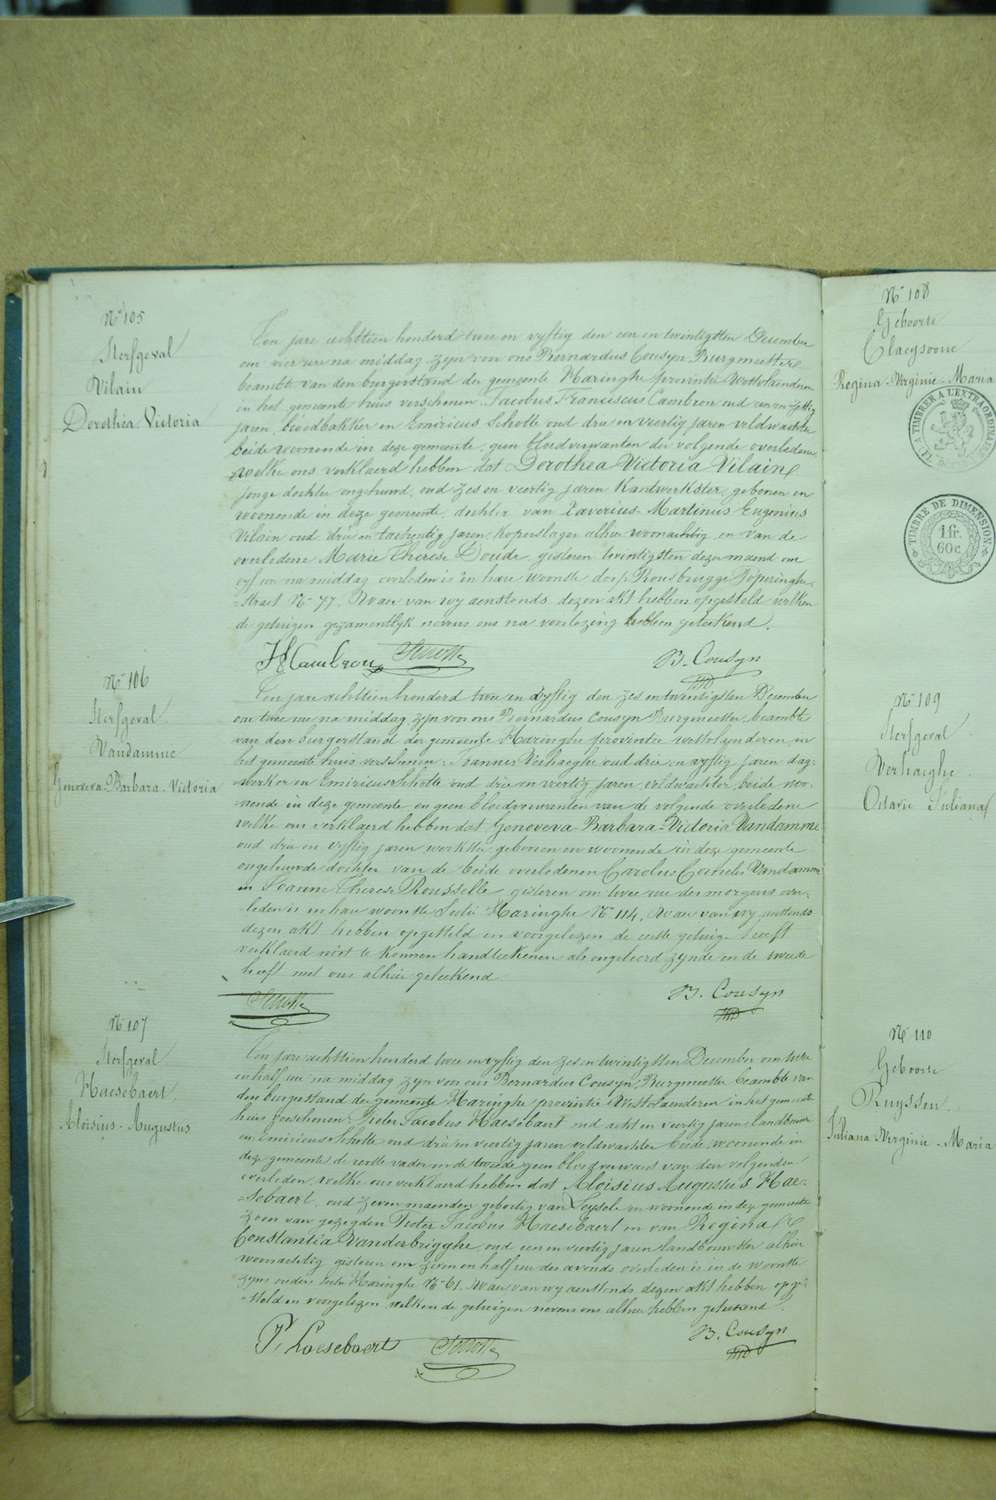 N° 105
Sterfgeval
Vilain
Dorothea Victoria
Een jare achttien honderd twee en vyftig den een en twintigsten December
om vier ure na middag zyn voor ons Bernardus Cousyn Burgmeester
beambte van den burgerstand der gemeente Haringhe provincie Westvlaenderen
in het gemeente huis verschenen Jacobus Franciscus Cambron oud een en vyftig
jaren, broodbakker en Emiricus Schotte oud drie en veertig jaren veldwachter
beide woonende in deze gemeente, geen bloedverwanten der volgende overledene
welke ons verklaerd hebben dat Dorothea Victoria Vilain
jonge dochter ongehuwd, oud zes en veertig jaren Kandwerkster, geboren en
woonende in deze gemeente, dochter van Xaverius Martinus Eugenius
Vilain oud drie en tachentig jaren, koperslager alhier woonachtig en van de
overledene Marie Therese Doude, gisteren twintigsten dezer maend om
vyf ure na middag overleden is in haere woonste dorp Rousbrugge Poperinghe
Straet N° 77. Waer van wy aenstonds dezen akt hebben opgesteld welken
de getuigen gezamentlyk nevens ons na voorlezing hebben geteekend.
Cambron Schotte B. Cousyn
N° 106
Sterfgeval
Vandamme
Genoveva-Barbara-Victoria
Een jare achttien honderd twee en vyftig den zes en twintigsten December
om twee ure na middag zyn voor ons Bernardus Cousyn Burgmeester, beambte
van den burgerstand der gemeente Haringhe provintie westvlaenderen in
het gemeente huis verschenen Joannes Verhaeghe oud drie en vyftig jaren dag-
werker en Emiricus Schotte oud drie en veertig jaren, veldwachter beide woo-
nende in deze gemeente en geen bloedverwanten van de volgende overledene
welke ons verklaerd hebben dat Genoveva Barbara-Victoria Vandamme
oud drie en vyftig jaren werkster geboren en woonende in deze gemeente
ongetrouwde dochter van de beide overledenen Carolus Cornelis Vandamme
en Joanne Therese Rousselle gisteren om twee ure des morgens over-
leden is in haer woonste Sectie Haringhe N° 114. Waer van wy aenstonds
dezen akt hebben opgesteld en voorgelezen de eerste getuige heeft
verklaerd niet te konnen handteekenen als ongeleerd zynde en de tweede
heeft met ons alhier geteekend.
Schotte B. Cousyn
N° 107
Sterfgeval
Haesebaert
Aloisius-Augustus
Een jare achttien honderd twee en vyftig den zes en twintigsten December om twee
en half ure na middag zyn voor ons Bernardus Cousyn, Burgmeester beambte van
den burgerstand der gemeente Haringhe provintie Westvlaenderen in het gemeente
huis verschenen Pieter Jacobus Haesebaert oud acht en veertig jaren landbouwer
en Emiricus Schotte oud drie en veertig jaren veldwachter beide woonende in
deze gemeente de eerste vader en de tweede geen bloedverwant van den volgenden
overleden, welke ons verklaerd hebben dat Aloisius Augustus Hae-
sebaert, oud zeven maenden geboortig van Leysele en woonende in deze gemeente
zoon van gezegden Pieter Jacobus Haesebaert en van Regina
Constantia Vanderbrigghe, oud een en veertig jaren landbouwster alhier
woonachtig gisteren om zeven en half ure des avonds overleden is in de woonste
zyns ouders Sectie Haringhe N° 61. Waer van wy aenstonds dezen akt hebben opge-
steld en voorgelezen welken de getuigen nevens ons alhier hebben geteekend.
P. Haesebaert Schotte B. Cousyn
N° 108
Geboorte
Claeysoone
Regina-Virginie-Maria
TIMBRE DE DIMENSION
1 fr.
60 c.
N° 109
Sterfgeval
Verhaeghe
Octavie Juliana
N° 110
Geboorte
Ruyssen
Juliana-Virginie-Maria